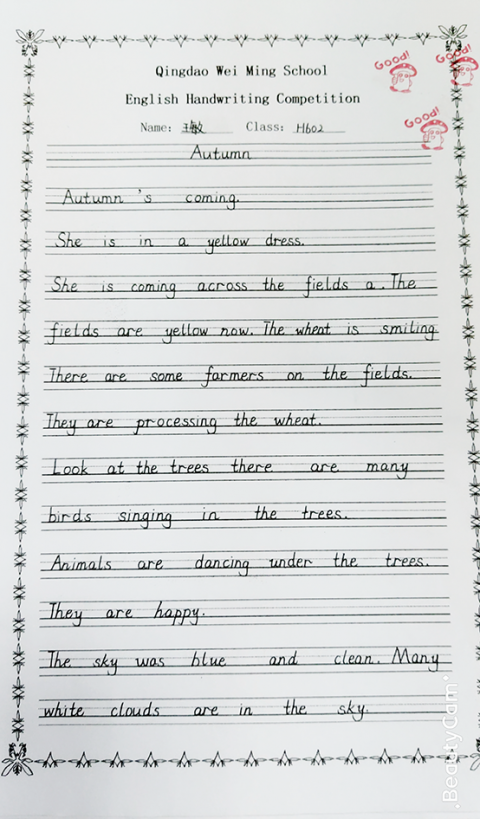 Good!
Good!
Qingdao Wei Ming School
English Handwriting Competition
Good!
Name: 王敏 Class: H602
Autumn
Autumn 's coming.
She is in a yellow dress.
She is coming across the fields a. The
fields are yellow now. The wheat is smiling
There are some farmers on the fields.
They are processing the wheat.
Look at the trees there are many
birds singing in the trees.
Animals are dancing under the trees.
They are happy.
The sky was blue and clean. Many
white clouds are in the sky.
.BeautyCam.